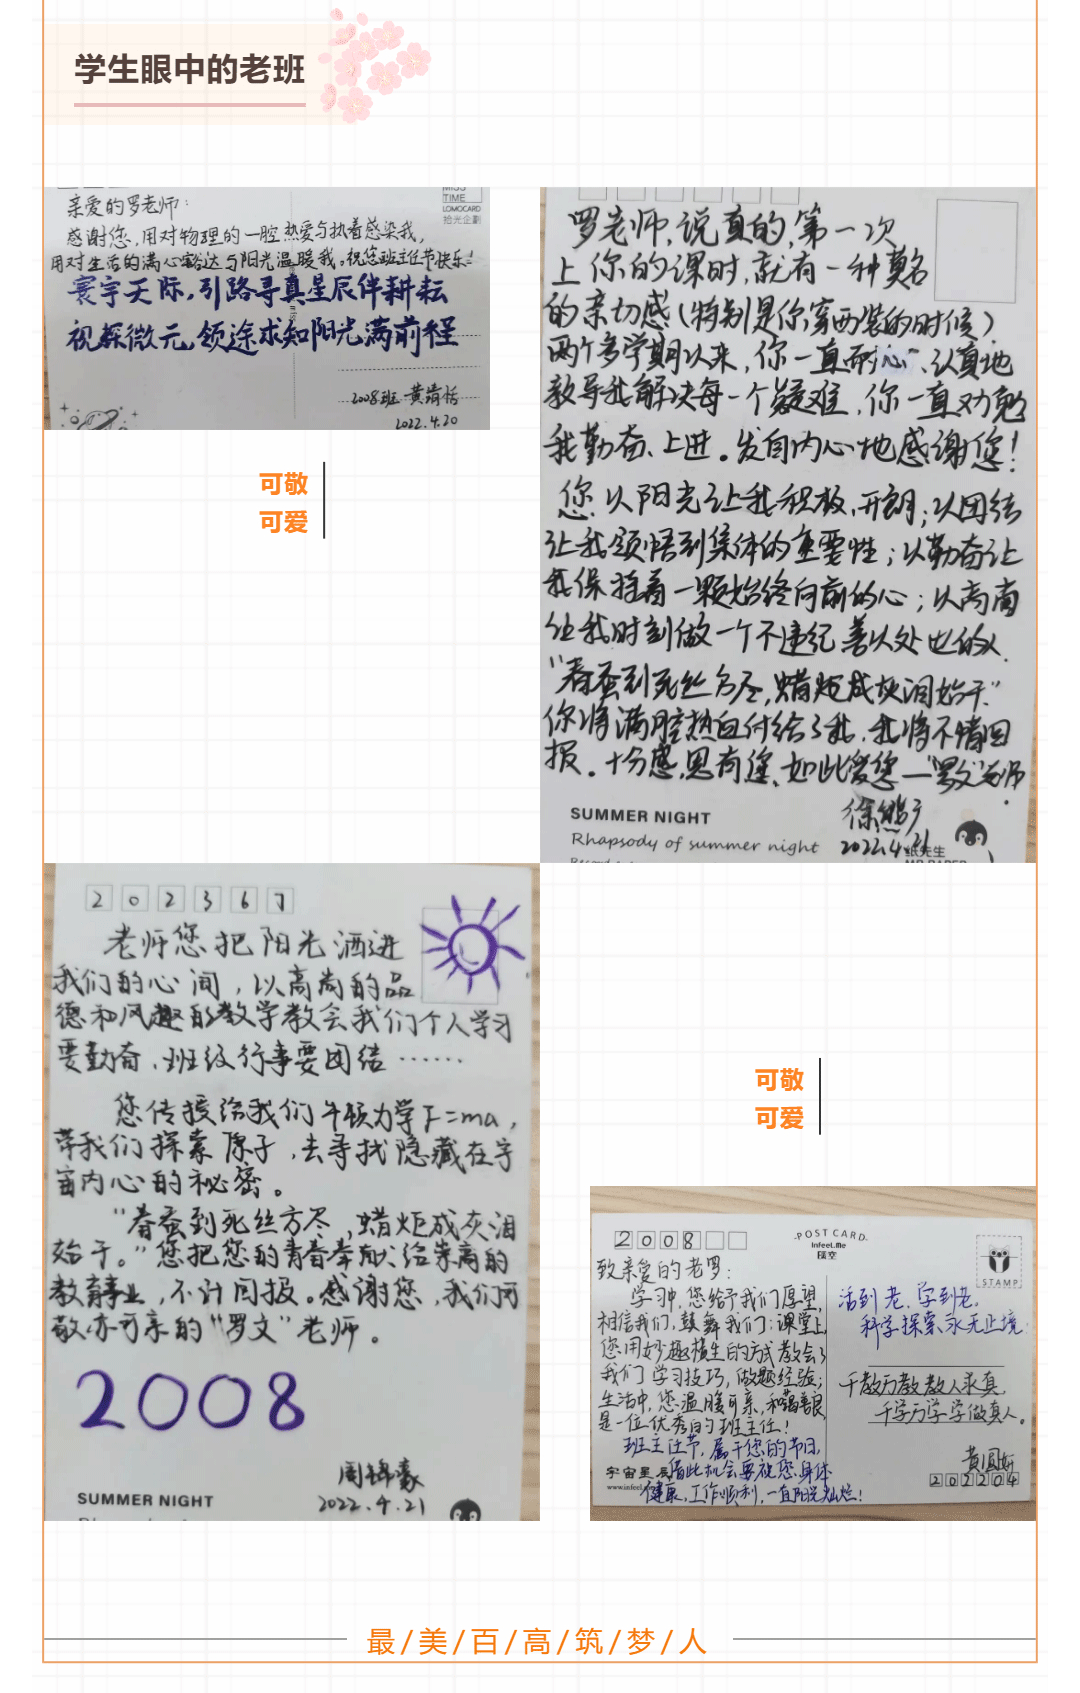 学生眼中的老班
亲爱的罗老师：
感谢您，用对物理的一腔热爱与执着感染我，
用对生活的满心豁达与阳光温暖我。祝您班主任节快乐！
寰宇天际，引路寻真星辰伴耕耘
视探微元，领途求知阳光满前程
2008班 黄靖恬
2022.4.20
TIME
LOMOCARD
拾光企劃
可敬
可爱
罗老师，说真的，第一次
上你的课时，就有一种莫名
的亲切感（特别是你穿西装的时候）
两个多学期以来，你一直耐心、认真地
教导我解决每一个疑难，你一直劝勉
我勤奋、上进。发自内心地感谢您！
您以阳光让我积极、开朗；以团结
让我领悟到集体的重要性；以勤奋让
我保持着一颗始终向前的心；以高尚
让我时刻做一个不违纪善以处世的人.
“春蚕到死丝方尽，蜡炬成灰泪始干”
你将满腔热血付给了我，我将不惜回
报。十分感恩有您、如此爱您—“罗文”老师
.
2022.4.21
SUMMER NIGHT
Rhapsody of summer night
纸先生
2 0 2 3 6 7
老师您把阳光洒进
我们的心间，以高尚的品
德和风趣的教学教会我们个人学习
要勤奋、班级行事要团结……
您传授给我们牛顿力学F=ma，
带我们探索原子，去寻找隐藏在宇
宙内心的秘密。
“春蚕到死丝方尽，蜡炬成灰泪
始干。”您把您的青春奉献给崇高的
教育事业，不计回报。感谢您，我们可
敬亦可亲的“罗文”老师。
2008
周锦豪
2022.4.21
SUMMER NIGHT
可敬
可爱
2 0 0 8
POST CARD
InFeel.Me
STAMP
致亲爱的老罗：
学习中，您给予我们厚望，
相信我们，鼓舞我们；课堂上，
您用妙趣横生的方式教会了
我们学习技巧，做题经验；
生活中，您温暖可亲，和蔼善良，
是一位优秀的班主任！
班主任节，属于您的节日，
宇宙星辰 借此机会要祝您身体
健康，工作顺利，一直阳光灿烂！
活到老，学到老。
科学探索永无止境.
千教万教教人求真，
千学万学学做真人。
黄圆妍
2 0 2 2 0 4
最/美/百/高/筑/梦/人